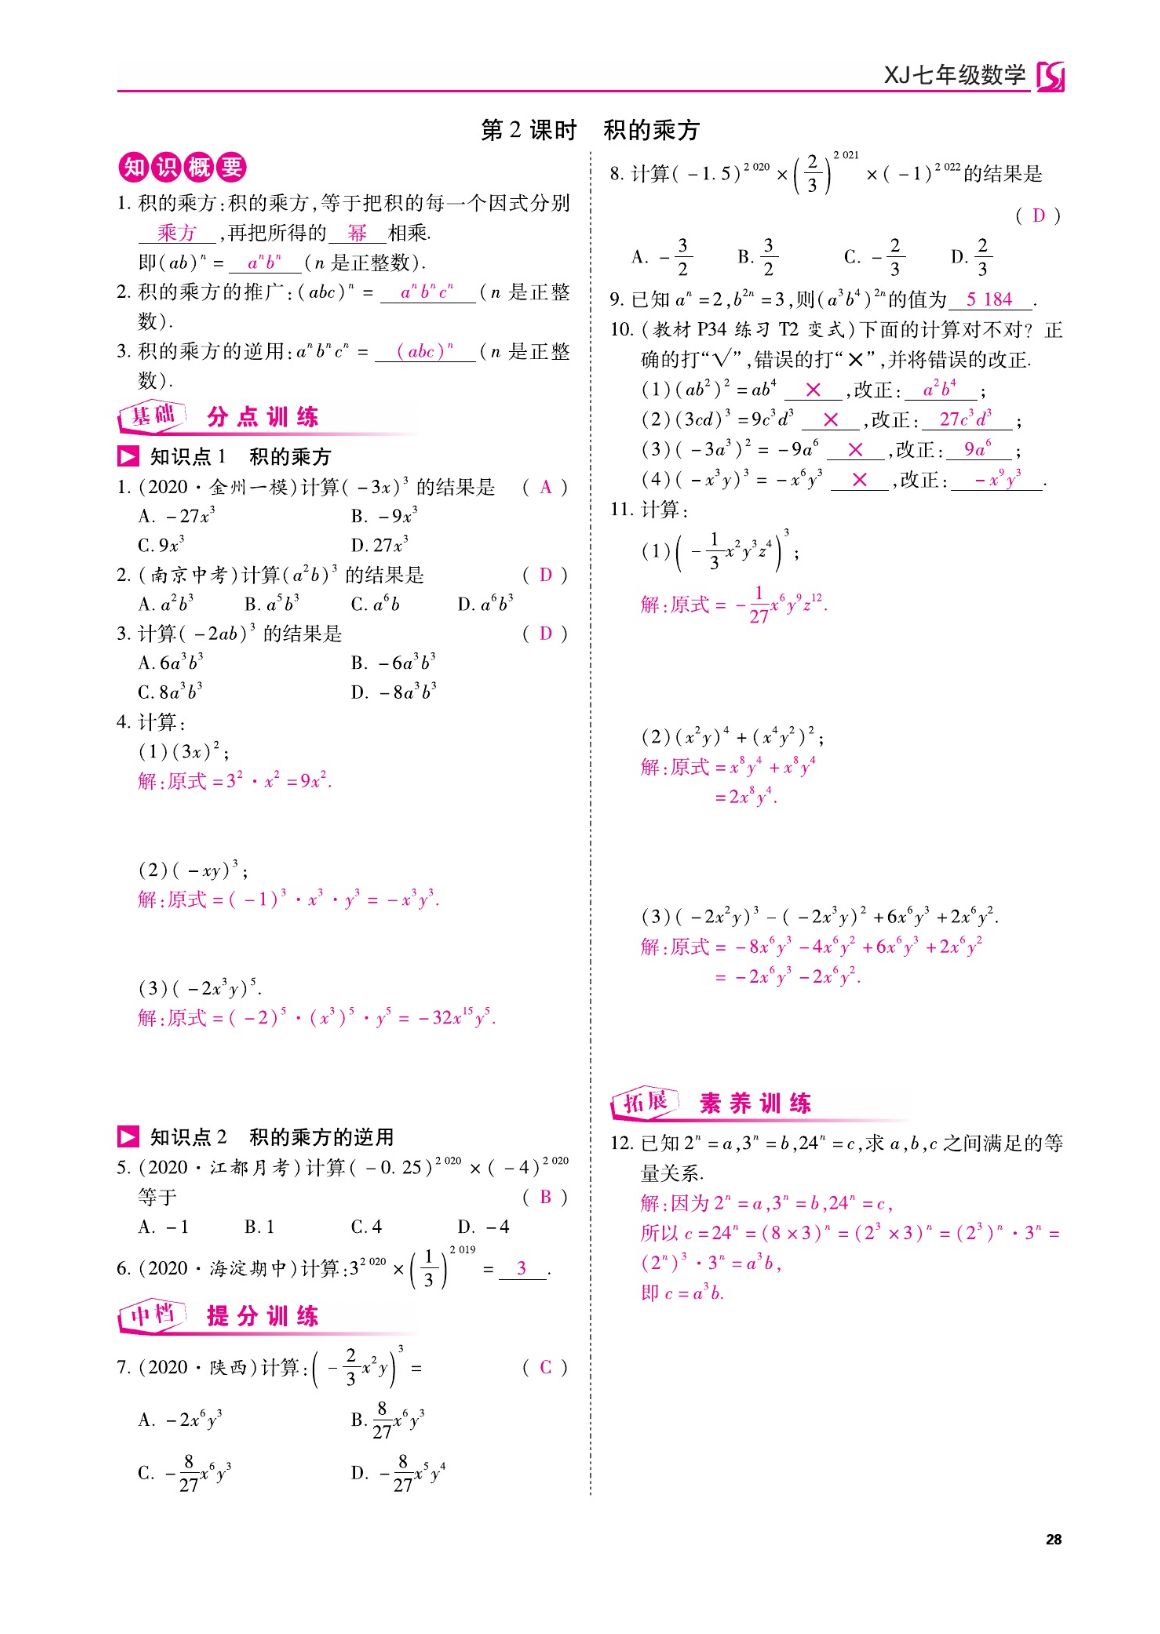 XJ七年级数学
第2课时　积的乘方
知识概要
1. 积的乘方:积的乘方,等于把积的每一个因式分别
乘方,再把所得的 幂 相乘.
即(ab)ⁿ = aⁿbⁿ (n 是正整数).
2. 积的乘方的推广:(abc)ⁿ = aⁿbⁿcⁿ (n 是正整
数).
3. 积的乘方的逆用:aⁿbⁿcⁿ = (abc)ⁿ (n 是正整
数).
基础 分点训练
知识点1　积的乘方
1. (2020·金州一模)计算(-3x)³ 的结果是 ( A )
A. -27x³ B. -9x³
C. 9x³ D. 27x³
2. (南京中考)计算(a²b)³ 的结果是 ( D )
A. a²b³ B. a⁵b³ C. a⁶b D. a⁶b³
3. 计算(-2ab)³ 的结果是 ( D )
A. 6a³b³ B. -6a³b³
C. 8a³b³ D. -8a³b³
4. 计算:
(1)(3x)²;
解:原式=3²·x²=9x².
(2)(-xy)³;
解:原式=(-1)³·x³·y³=-x³y³.
(3)(-2x³y)⁵.
解:原式=(-2)⁵·(x³)⁵·y⁵=-32x¹⁵y⁵.
知识点2　积的乘方的逆用
5. (2020·江都月考)计算(-0.25)²⁰²⁰×(-4)²⁰²⁰
等于 ( B )
A. -1 B. 1 C. 4 D. -4
6. (2020·海淀期中)计算:3²⁰²⁰×(1/3)²⁰¹⁹= 3 .
中档 提分训练
7. (2020·陕西)计算:(-2/3x²y)³= ( C )
A. -2x⁶y³ B. 8/27x⁶y³
C. -8/27x⁶y³ D. -8/27x⁵y⁴
8. 计算(-1.5)²⁰²⁰×(2/3)²⁰²¹×(-1)²⁰²²的结果是
( D )
A. -3/2 B. 3/2 C. -2/3 D. 2/3
9. 已知 aⁿ=2,b²ⁿ=3,则(a³b⁴)²ⁿ的值为 5 184 .
10. (教材 P34 练习 T2 变式)下面的计算对不对? 正
确的打“√”,错误的打“×”,并将错误的改正.
(1)(ab²)²=ab⁴ × ,改正: a²b⁴ ;
(2)(3cd)³=9c³d³ × ,改正: 27c³d³ ;
(3)(-3a³)²=-9a⁶ × ,改正: 9a⁶ ;
(4)(-x³y)³=-x⁶y³ × ,改正: -x⁹y³ .
11. 计算:
(1)(-1/3x²y³z⁴)³;
解:原式=-1/27x⁶y⁹z¹².
(2)(x²y)⁴+(x⁴y²)²;
解:原式=x⁸y⁴+x⁸y⁴
=2x⁸y⁴.
(3)(-2x²y)³-(-2x³y)²+6x⁶y³+2x⁶y².
解:原式=-8x⁶y³-4x⁶y²+6x⁶y³+2x⁶y²
=-2x⁶y³-2x⁶y².
拓展 素养训练
12. 已知 2ⁿ=a,3ⁿ=b,24ⁿ=c,求 a,b,c 之间满足的等
量关系.
解:因为 2ⁿ=a,3ⁿ=b,24ⁿ=c,
所以 c=24ⁿ=(8×3)ⁿ=(2³×3)ⁿ=(2³)ⁿ·3ⁿ=
(2ⁿ)³·3ⁿ=a³b,
即 c=a³b.
28